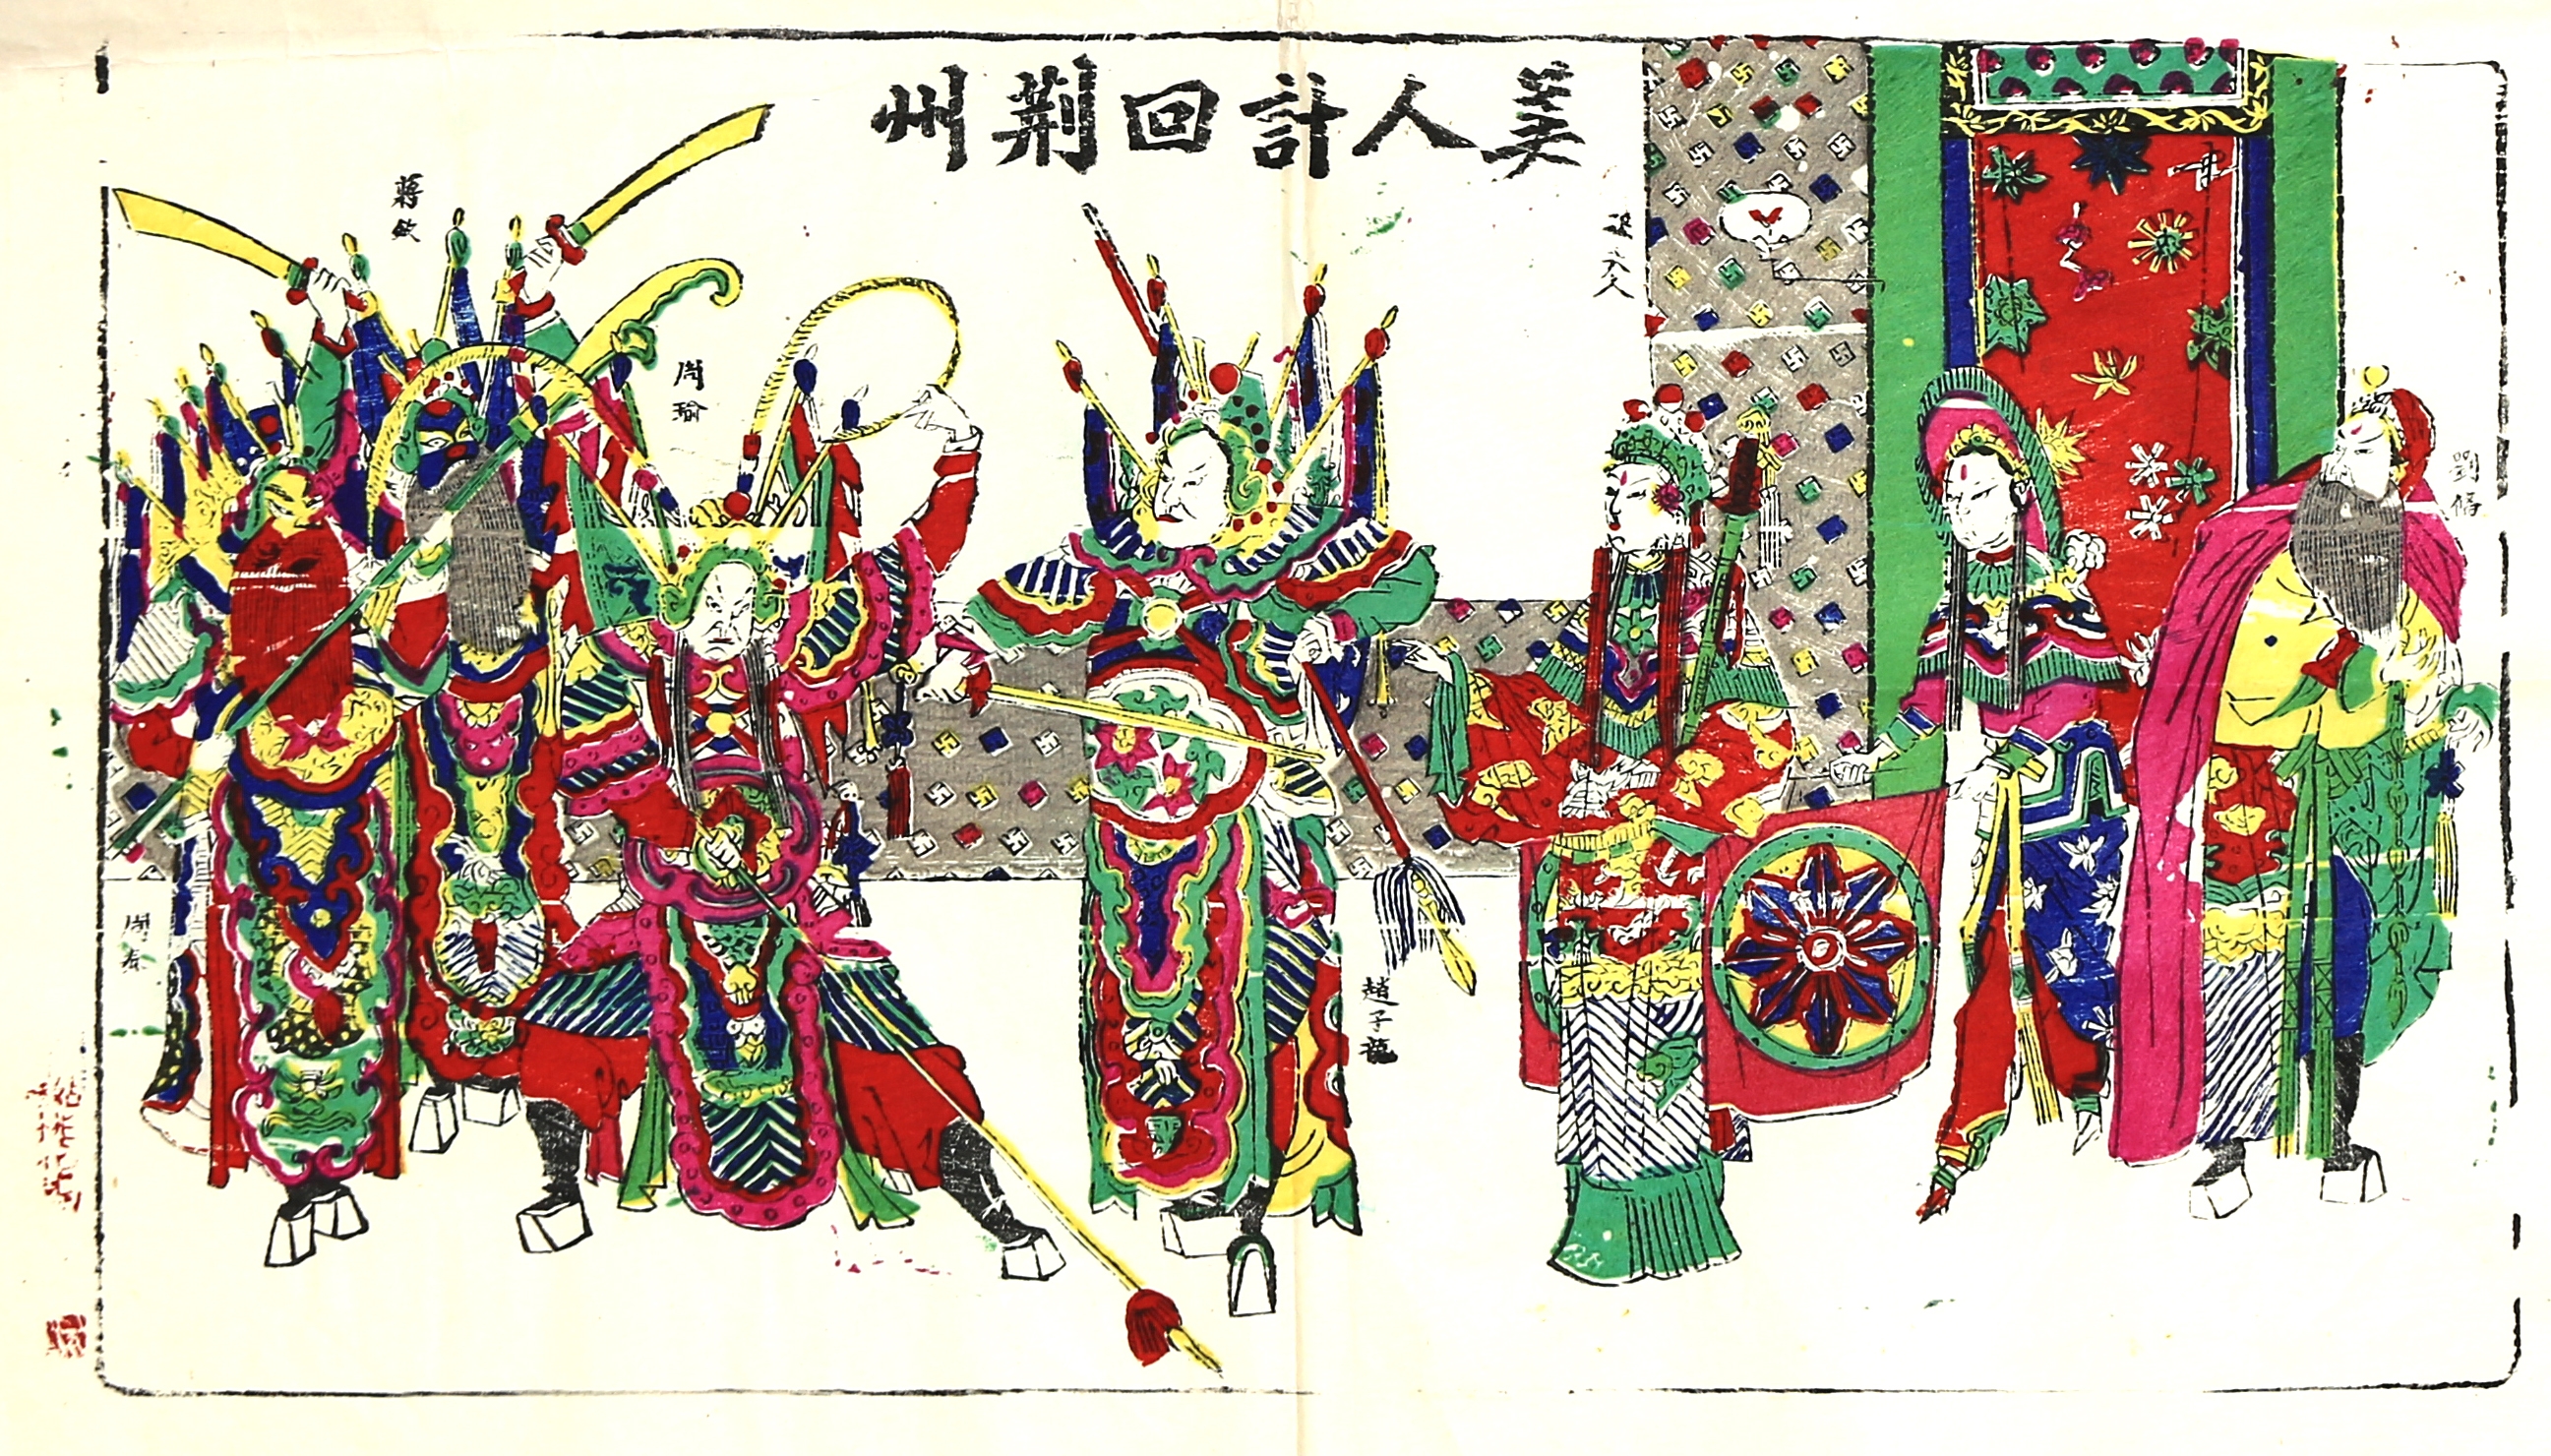 美人計回荊州
劉備
孫夫人
趙子龍
周瑜
蔣欽
周泰